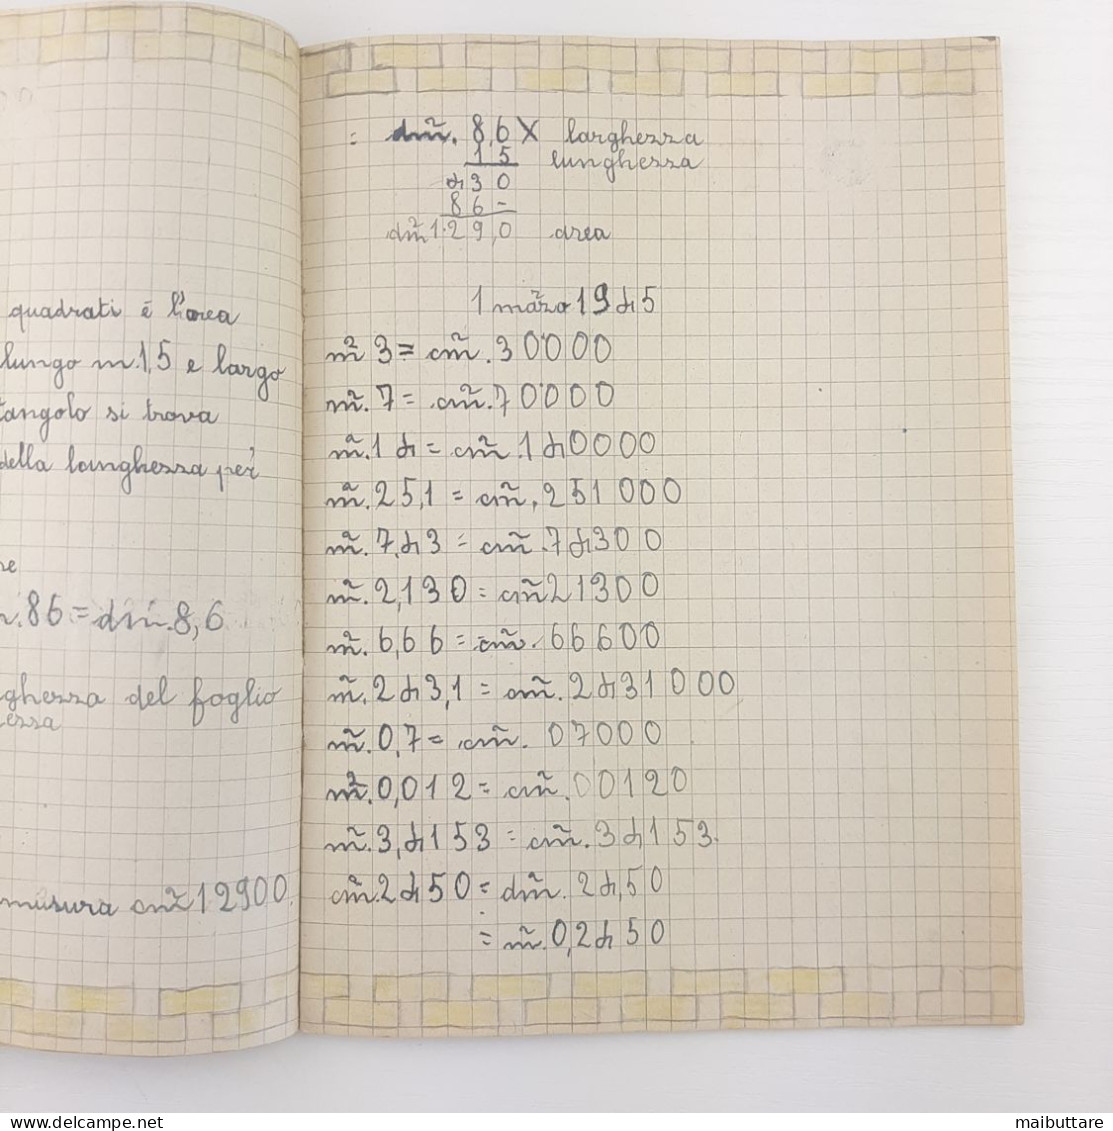 quadrati é l'area
lungo m.1,5 e largo
tangolo si trova
della lunghezza per
re
.86 = dm.8,6
ghezza del foglio
ezza
misura cm² 12900
= dm². 8,6 X larghezza
15 lunghezza
430
86-
dm² 1.29,0 area
1 marzo 1945
m² 3 = cm². 30000
m². 7 = cm². 70000
m². 14 = cm². 140000
m². 25,1 = cm². 251000
m². 7,43 = cm². 74300
m². 2,130 = cm² 21300
m². 6,66 = cm². 66600
m². 243,1 = cm². 2431000
m². 0,7 = cm². 07000
m². 0,012 = cm². 00120
m². 3,4153 = cm². 34153.
cm². 2450 = dm². 24,50
= m². 0,2450
delcampe.net
maibuttare